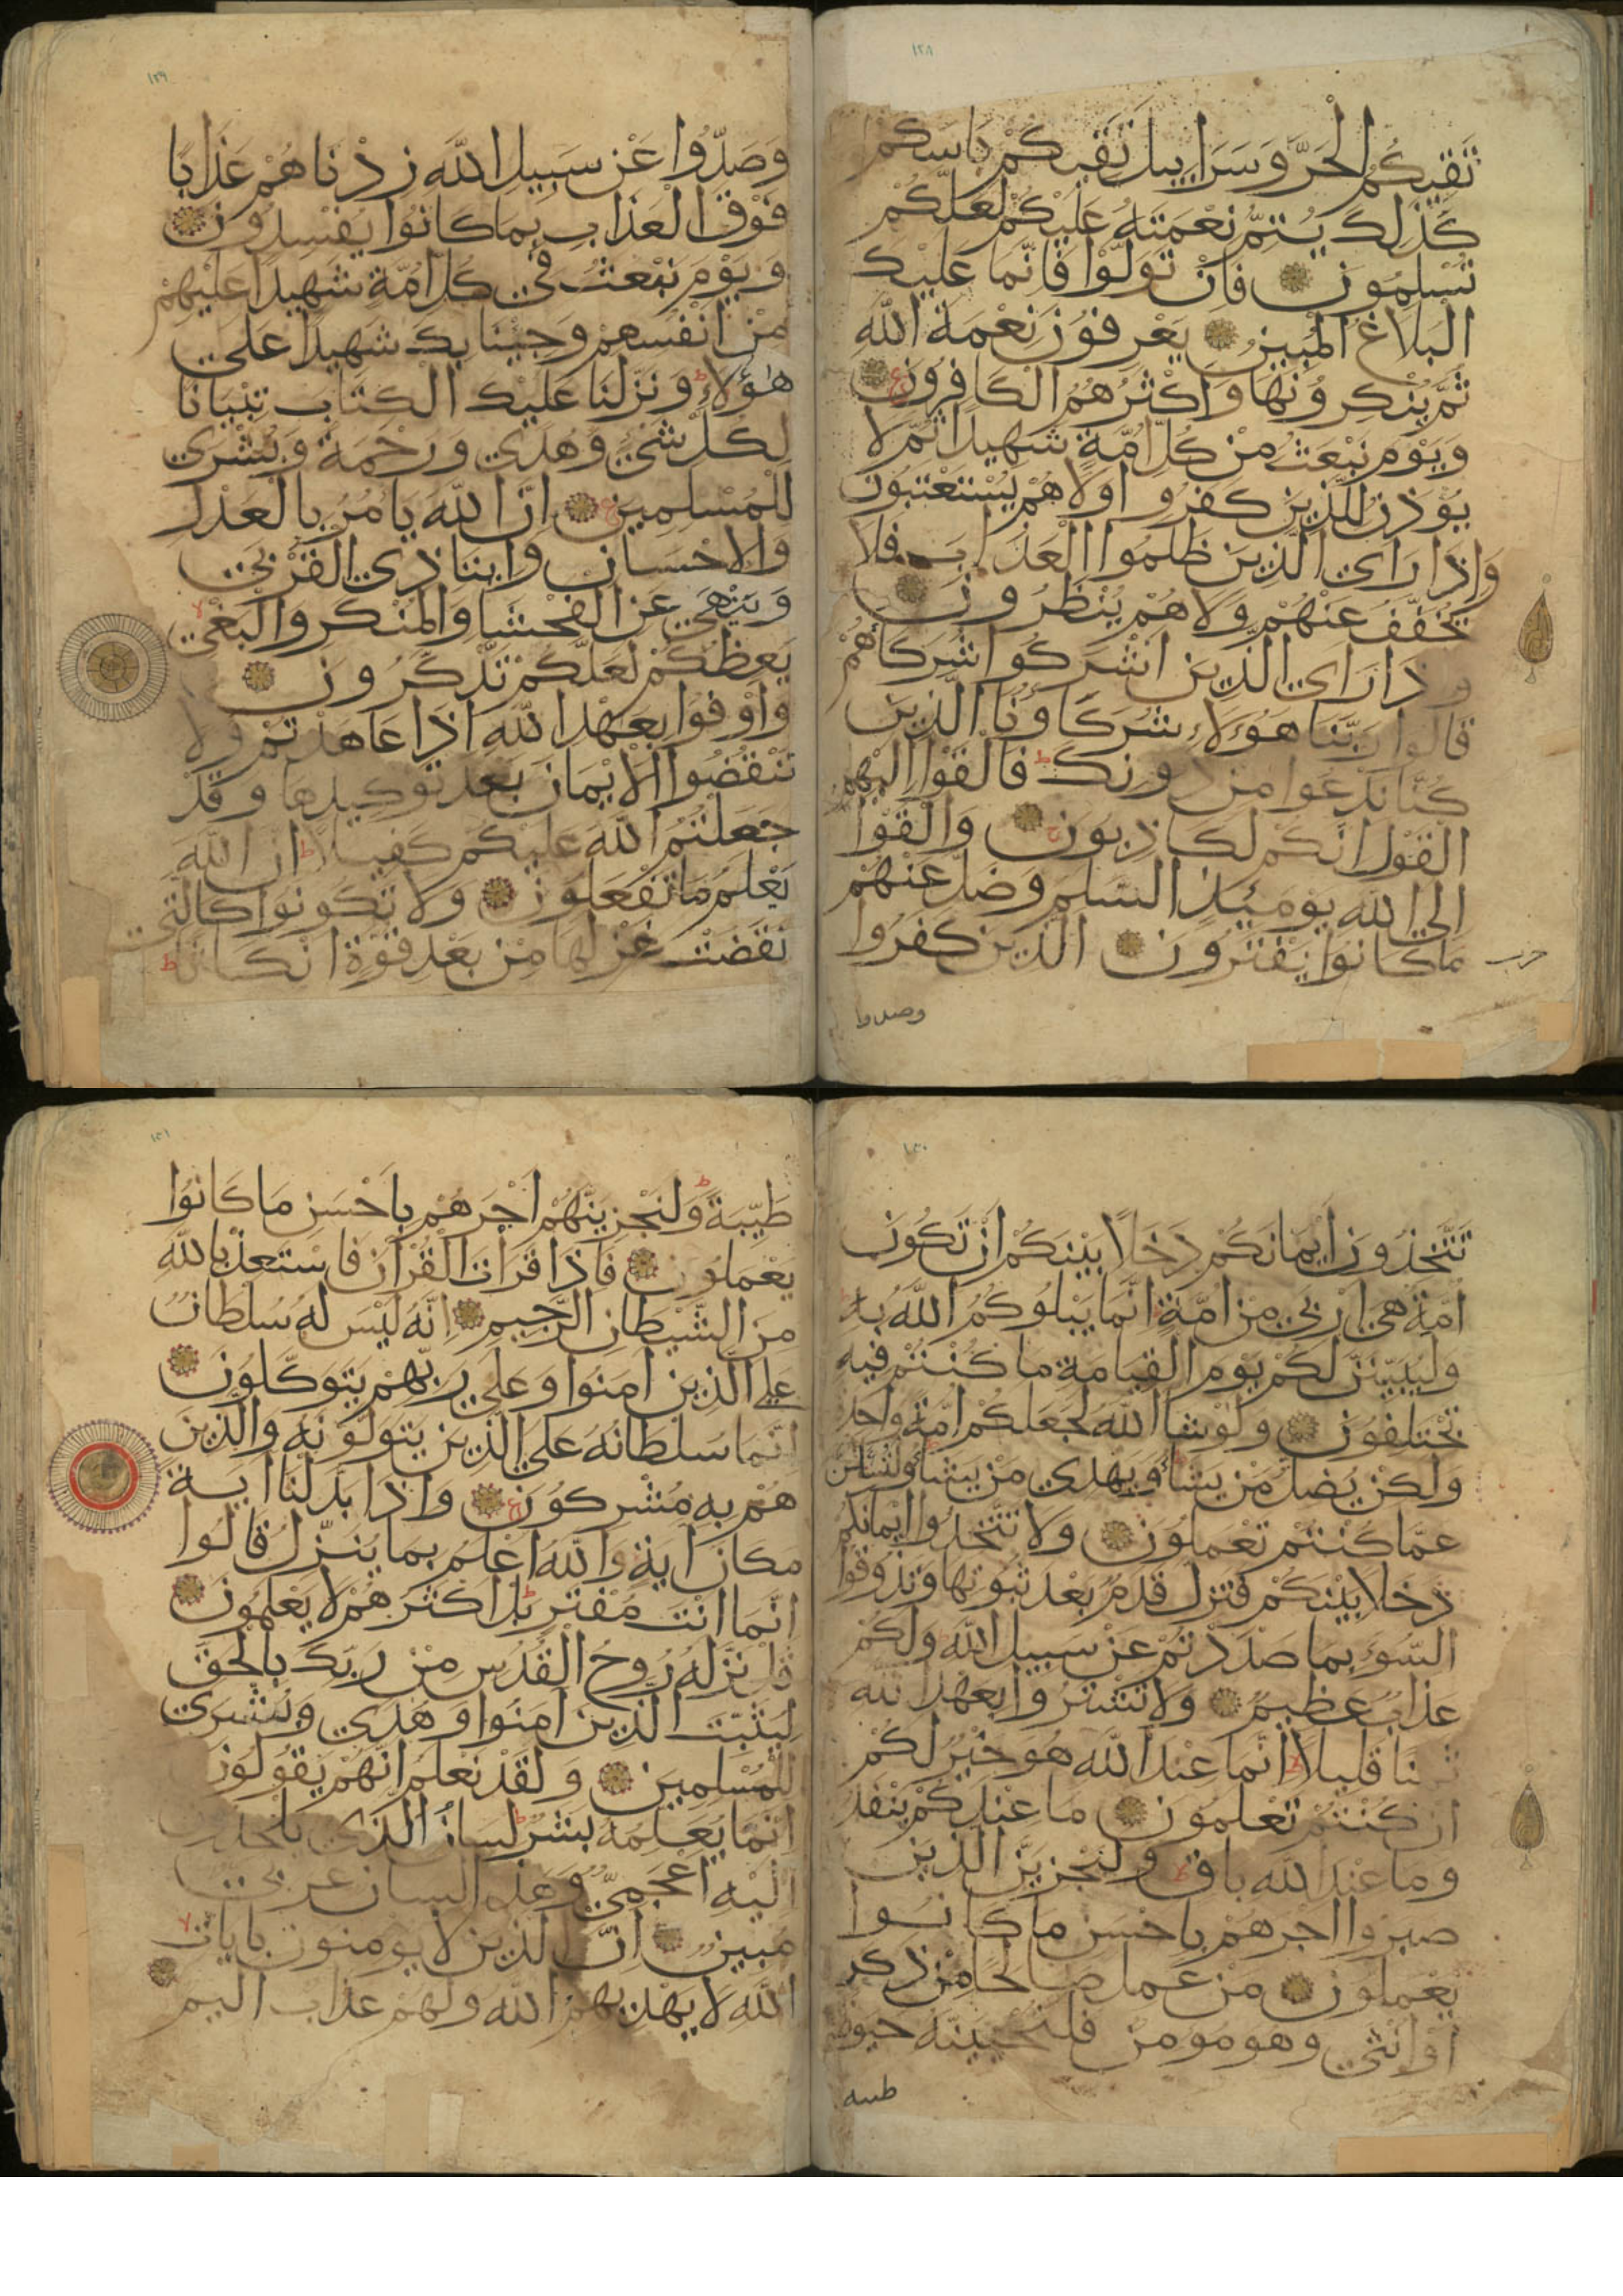 ١٢٨
تَقِيكُمُ الْحَرَّ وَسَرَابِيلَ تَقِيكُمْ بَاسَكُمْ
كَذَلِكَ يُتِمُّ نِعْمَتَهُ عَلَيْكُمْ لَعَلَّكُمْ
تُسْلِمُونَ فَاِنْ تَوَلَّوْا فَاِنَّمَا عَلَيْكَ
الْبَلَاغُ الْمُبِينُ يَعْرِفُونَ نِعْمَةَ اللَّهِ
ثُمَّ يُنْكِرُونَهَا وَاَكْثَرُهُمُ الْكَافِرُونَ
وَيَوْمَ نَبْعَثُ مِنْ كُلِّ اُمَّةٍ شَهِيدًا ثُمَّ لَا
يُؤْذَنُ لِلَّذِينَ كَفَرُوا وَلَا هُمْ يُسْتَعْتَبُونَ
وَاِذَا رَاَى الَّذِينَ ظَلَمُوا الْعَذَابَ فَلَا
يُخَفَّفُ عَنْهُمْ وَلَا هُمْ يُنْظَرُونَ
وَاِذَا رَاَى الَّذِينَ اَشْرَكُوا شُرَكَاهُمْ
قَالُوا رَبَّنَا هَؤُلَاءِ شُرَكَاؤُنَا الَّذِينَ
كُنَّا نَدْعُوا مِنْ دُونِكَ ط فَاَلْقَوْا اِلَيْهِمُ
الْقَوْلَ اِنَّكُمْ لَكَاذِبُونَ وَاَلْقَوْا
اِلَى اللَّهِ يَوْمَئِذٍ السَّلَمَ وَضَلَّ عَنْهُمْ
مَا كَانُوا يَفْتَرُونَ الَّذِينَ كَفَرُوا
حزب
وصدوا
١٢٩
وَصَدُّوا عَنْ سَبِيلِ اللَّهِ زِدْنَاهُمْ عَذَابًا
فَوْقَ الْعَذَابِ بِمَا كَانُوا يُفْسِدُونَ
وَيَوْمَ نَبْعَثُ فِي كُلِّ اُمَّةٍ شَهِيدًا عَلَيْهِمْ
مِنْ اَنْفُسِهِمْ وَجِئْنَا بِكَ شَهِيدًا عَلَى
هَؤُلَاءِ ط وَنَزَّلْنَا عَلَيْكَ الْكِتَابَ تِبْيَانًا
لِكُلِّ شَيْءٍ وَهُدًى وَرَحْمَةً وَبُشْرَى
لِلْمُسْلِمِينَ ع اِنَّ اللَّهَ يَامُرُ بِالْعَدْلِ
وَالْاِحْسَانِ وَاِيتَا ذِي الْقُرْبَى
وَيَنْهَى عَنِ الْفَحْشَا وَالْمُنْكَرِ وَالْبَغْيِ لا
يَعِظُكُمْ لَعَلَّكُمْ تَذَّكَّرُونَ
وَاَوْفُوا بِعَهْدِ اللَّهِ اِذَا عَاهَدْتُمْ وَلَا
تَنْقُضُوا الْاَيْمَانَ بَعْدَ تَوْكِيدِهَا وَقَدْ
جَعَلْتُمُ اللَّهَ عَلَيْكُمْ كَفِيلًا ط اِنَّ اللَّهَ
يَعْلَمُ مَا تَفْعَلُونَ وَلَا تَكُونُوا كَالَّتِي
نَقَضَتْ غَزْلَهَا مِنْ بَعْدِ قُوَّةٍ اَنْكَاثًا ط
١٣٠
تَتَّخِذُونَ اَيْمَانَكُمْ دَخَلًا بَيْنَكُمْ اَنْ تَكُونَ
اُمَّةٌ هِيَ اَرْبَى مِنْ اُمَّةٍ اِنَّمَا يَبْلُوكُمُ اللَّهُ بِهِ
وَلَيُبَيِّنَنَّ لَكُمْ يَوْمَ الْقِيَامَةِ مَا كُنْتُمْ فِيهِ
تَخْتَلِفُونَ وَلَوْ شَا اللَّهُ لَجَعَلَكُمْ اُمَّةً وَاحِدَةً
وَلَكِنْ يُضِلُّ مَنْ يَشَا وَيَهْدِي مَنْ يَشَا وَلَتُسْئَلُنَّ
عَمَّا كُنْتُمْ تَعْمَلُونَ وَلَا تَتَّخِذُوا اَيْمَانَكُمْ
دَخَلًا بَيْنَكُمْ فَتَزِلَّ قَدَمٌ بَعْدَ ثُبُوتِهَا وَتَذُوقُوا
السُّوءَ بِمَا صَدَدْتُمْ عَنْ سَبِيلِ اللَّهِ وَلَكُمْ
عَذَابٌ عَظِيمٌ وَلَا تَشْتَرُوا بِعَهْدِ اللَّهِ
ثَمَنًا قَلِيلًا ط اِنَّمَا عِنْدَ اللَّهِ هُوَ خَيْرٌ لَكُمْ
اِنْ كُنْتُمْ تَعْلَمُونَ مَا عِنْدَكُمْ يَنْفَدُ
وَمَا عِنْدَ اللَّهِ بَاقٍ ط وَلَنَجْزِيَنَّ الَّذِينَ
صَبَرُوا اَجْرَهُمْ بِاَحْسَنِ مَا كَانُوا
يَعْمَلُونَ مَنْ عَمِلَ صَالِحًا مِنْ ذَكَرٍ
اَوْ اُنْثَى وَهُوَ مُؤْمِنٌ فَلَنُحْيِيَنَّهُ حَيَوةً
طيبه
١٣١
طَيِّبَةً ط وَلَنَجْزِيَنَّهُمْ اَجْرَهُمْ بِاَحْسَنِ مَا كَانُوا
يَعْمَلُونَ فَاِذَا قَرَاْتَ الْقُرْآنَ فَاسْتَعِذْ بِاللَّهِ
مِنَ الشَّيْطَانِ الرَّجِيمِ اِنَّهُ لَيْسَ لَهُ سُلْطَانٌ
عَلَى الَّذِينَ آمَنُوا وَعَلَى رَبِّهِمْ يَتَوَكَّلُونَ
اِنَّمَا سُلْطَانُهُ عَلَى الَّذِينَ يَتَوَلَّوْنَهُ وَالَّذِينَ
هُمْ بِهِ مُشْرِكُونَ ع وَاِذَا بَدَّلْنَا آيَةً
مَكَانَ آيَةٍ وَاللَّهُ اَعْلَمُ بِمَا يُنَزِّلُ قَالُوا
اِنَّمَا اَنْتَ مُفْتَرٍ ط بَلْ اَكْثَرُهُمْ لَا يَعْلَمُونَ
قُلْ نَزَّلَهُ رُوحُ الْقُدُسِ مِنْ رَبِّكَ بِالْحَقِّ
لِيُثَبِّتَ الَّذِينَ آمَنُوا وَهُدًى وَبُشْرَى
لِلْمُسْلِمِينَ وَلَقَدْ نَعْلَمُ اَنَّهُمْ يَقُولُونَ
اِنَّمَا يُعَلِّمُهُ بَشَرٌ ط لِسَانُ الَّذِي يُلْحِدُونَ
اِلَيْهِ اَعْجَمِيٌّ وَهَذَا لِسَانٌ عَرَبِيٌّ
مُبِينٌ اِنَّ الَّذِينَ لَا يُؤْمِنُونَ بِآيَاتِ لا
اللَّهِ لَا يَهْدِيهِمُ اللَّهُ وَلَهُمْ عَذَابٌ اَلِيمٌ